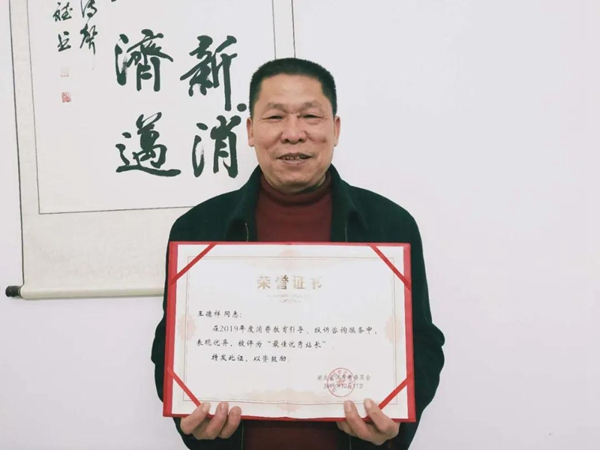 新消
濟邁
荣誉证书
王德祥 同志：
在2019年度消费教育引导、投诉咨询服务中，
表现优异，被评为“最佳优秀站长”。
特发此证，以资鼓励。